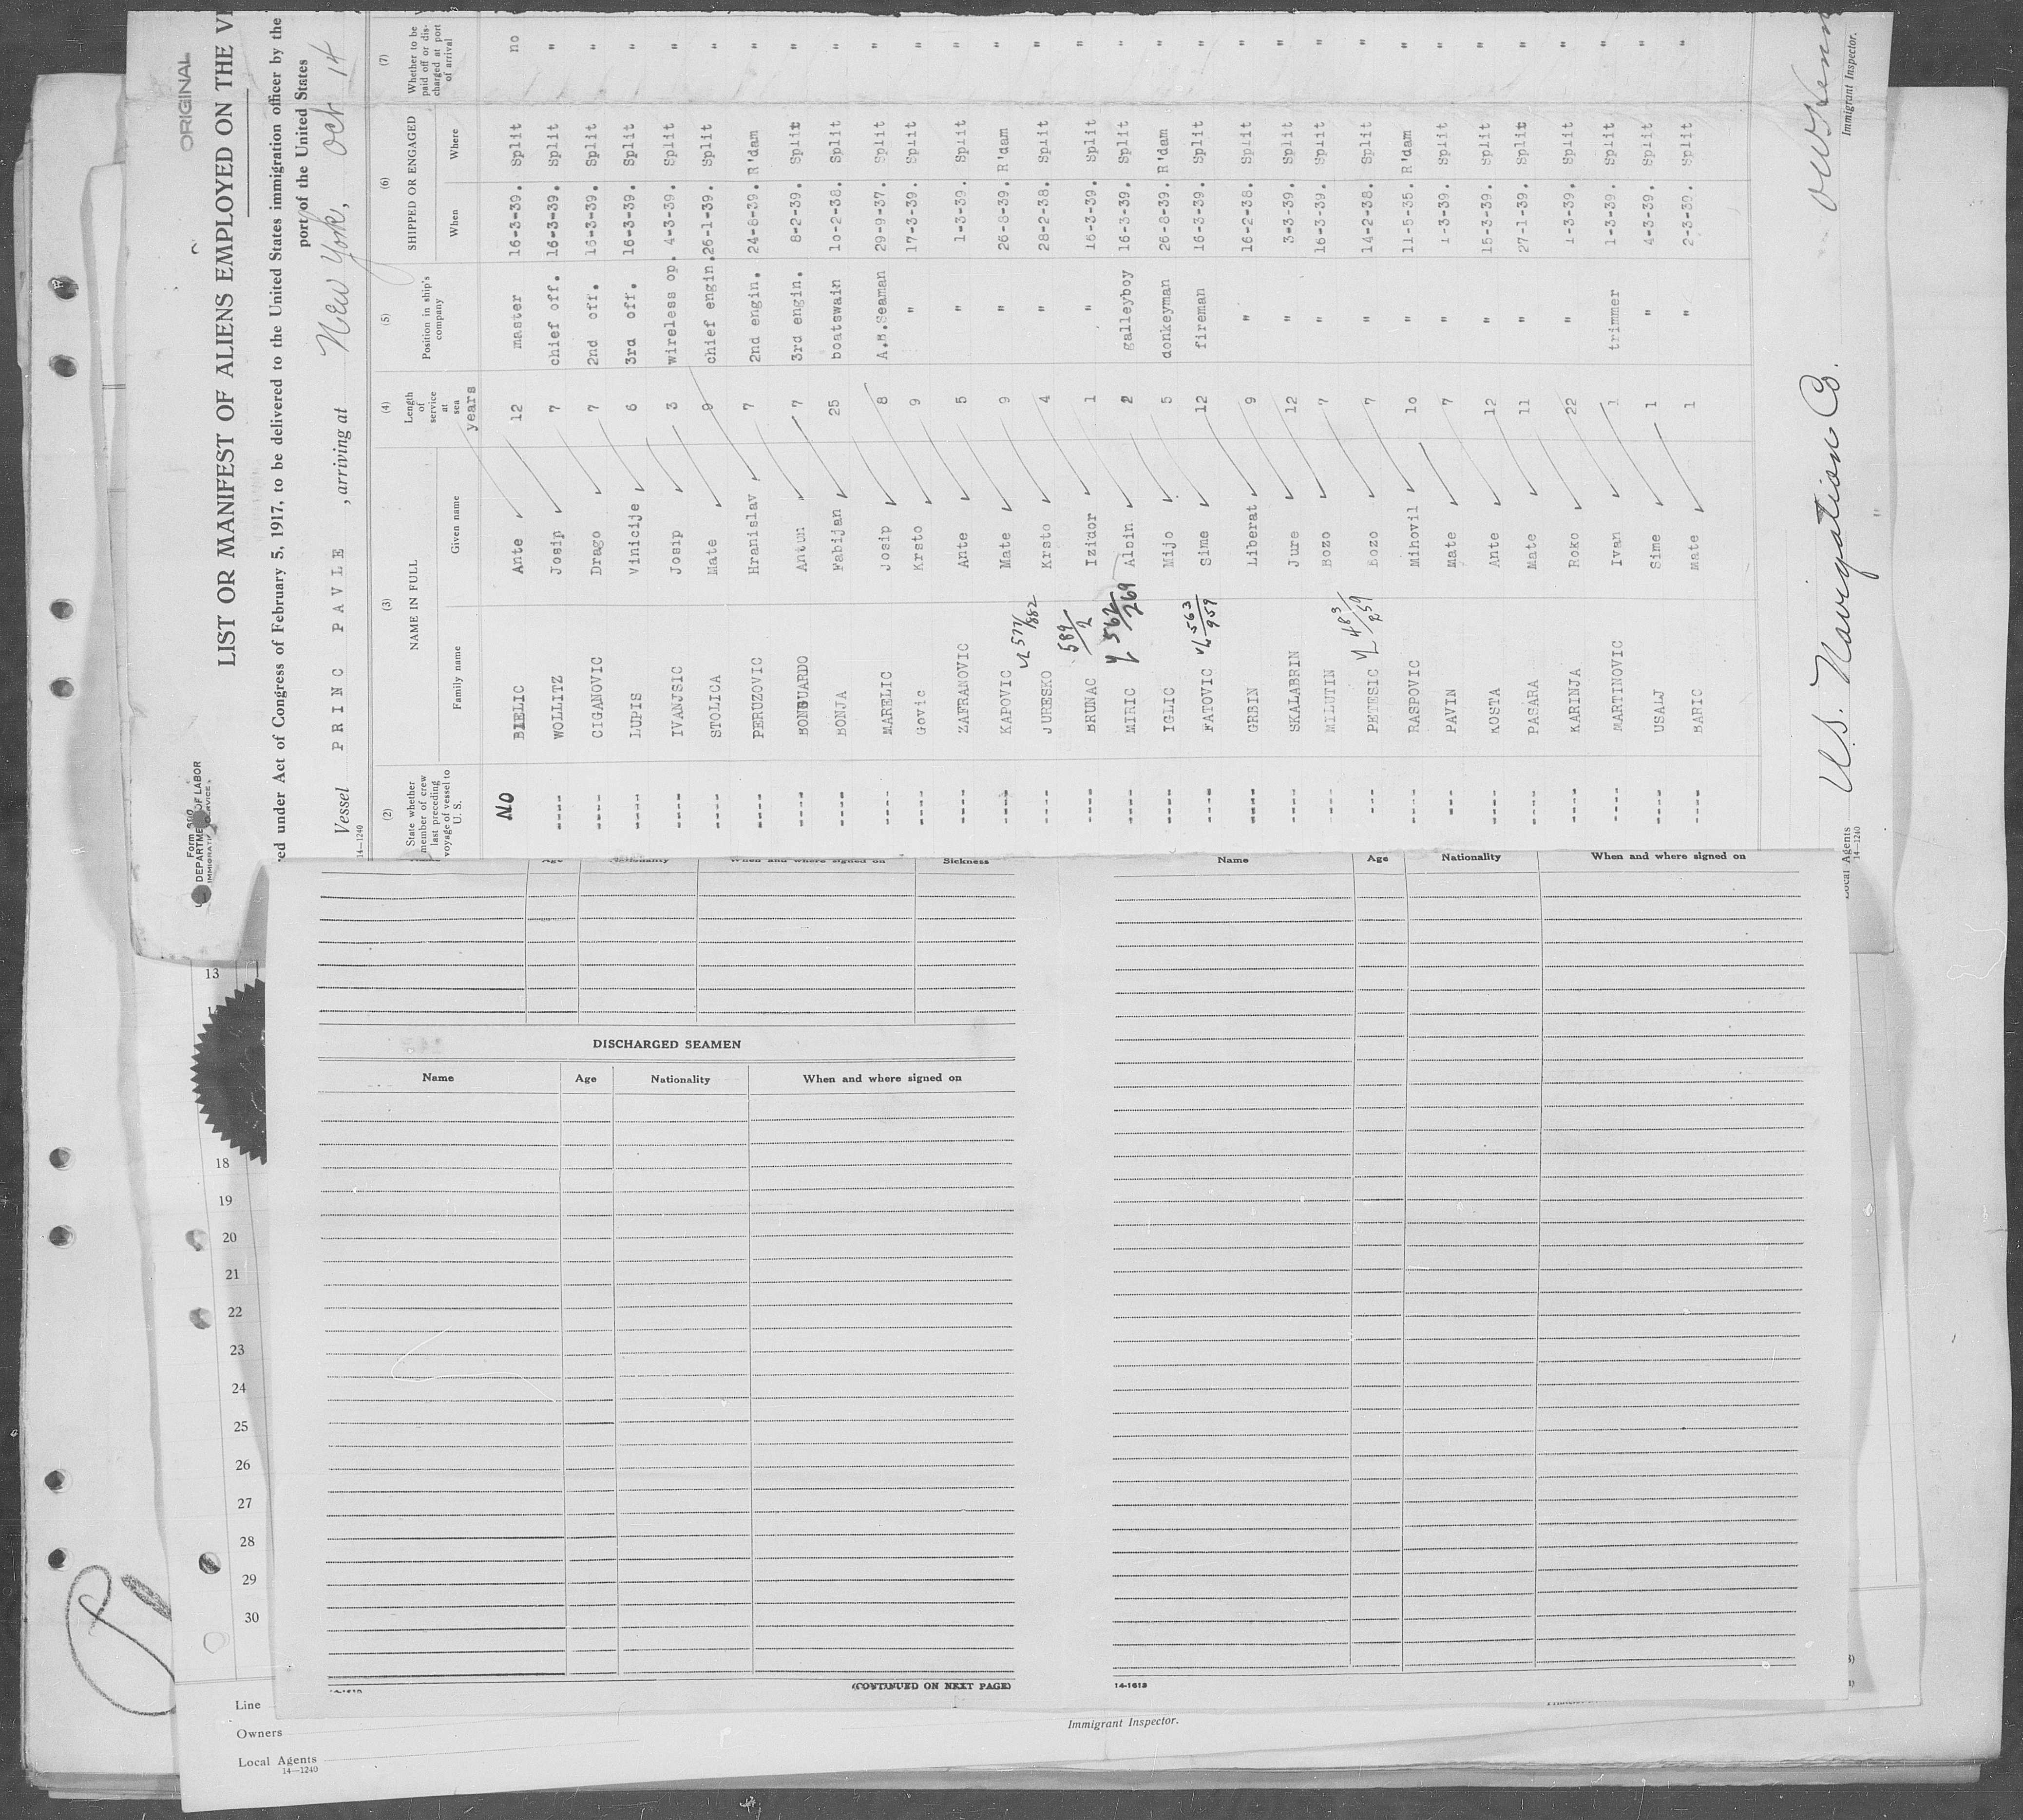 ORIGINAL
Form 
DEPARTMENT OF LABOR
LIST OR MANIFEST OF ALIENS EMPLOYED ON THE
red under Act of Congress of February 5, 1917, to be delivered to the United States immigration officer by the
port of the United States
Vessel PRINC PAVLE , arriving at New York, Oct 14
14—1240
(2) (3) (4) (5) (6) (7)
State whether member of crew last preceding voyage of vessel to U. S. NAME IN FULL Length of service at sea Position in ship's company SHIPPED OR ENGAGED Whether to be paid off or discharged at port of arrival
Family name Given name years When Where
NO BIELIC Ante 12 master 16-3-39. Split no
---- WOLLITZ Josip 7 chief off. 16-3-39. Split "
---- CIGANOVIC Drago 7 2nd off. 16-3-39. Split "
---- LUPIS Vinicije 6 3rd off. 16-3-39. Split "
---- IVANJSIC Josip 3 wireless op. 4-3-39. Split "
---- STOLICA Mate 9 chief engin. 26-1-39. Split "
---- PERUZOVIC Hranislav 7 2nd engin. 24-8-39. R'dam "
---- BONGUARDO Antun 7 3rd engin. 8-2-39. Split "
---- BONJA Fabijan 25 boatswain 10-2-38. Split "
---- MARELIC Josip 8 A.B.Seaman 29-9-37. Split "
---- Govic Krsto 9 " 17-3-39. Split "
---- ZAFRANOVIC Ante 5 " 1-3-39. Split "
---- KAPOVIC Mate 9 " 26-8-39. R'dam "
---- JURESKO 577/882 Krsto 4 " 28-2-38. Split "
---- BRUNAC 589/2 Izidor 1 " 16-3-39. Split "
---- MIRIC 562/269 Aloin 2 galleyboy 16-3-39. Split "
---- IGLIC Mijo 5 donkeyman 26-8-39. R'dam "
---- FATOVIC 563/959 Sime 12 fireman 16-3-39. Split "
---- GRBIN Liberat 9 " 16-2-38. Split "
---- SKALABRIN Jure 12 " 3-3-39. Split "
---- MILUTIN Bozo 7 " 16-3-39. Split "
--- PETESIC 483/259 Bozo 7 " 14-2-38. Split "
---- RASPOVIC Mihovil 10 " 11-5-35. R'dam "
---- PAVIN Mate 7 " 1-3-39. Split "
---- KOSTA Ante 12 " 15-3-39. Split "
---- PASARA Mate 11 " 27-1-39. Split "
---- KARINJA Roko 22 " 1-3-39. Split "
---- MARTINOVIC Ivan 1 trimmer 1-3-39. Split "
---- USALJ Sime 1 " 4-3-39. Split "
---- BARIC Mate 1 " 2-3-39. Split "
Local Agents U.S. Navigation Co.
14—1240
Immigrant Inspector.
Name Age Nationality When and where signed on Sickness
DISCHARGED SEAMEN
Name Age Nationality When and where signed on
(CONTINUED ON NEXT PAGE)
Name Age Nationality When and where signed on
14-1613
13
18
19
20
21
22
23
24
25
26
27
28
29
30
Line
Owners
Local Agents
14—1240
Immigrant Inspector.